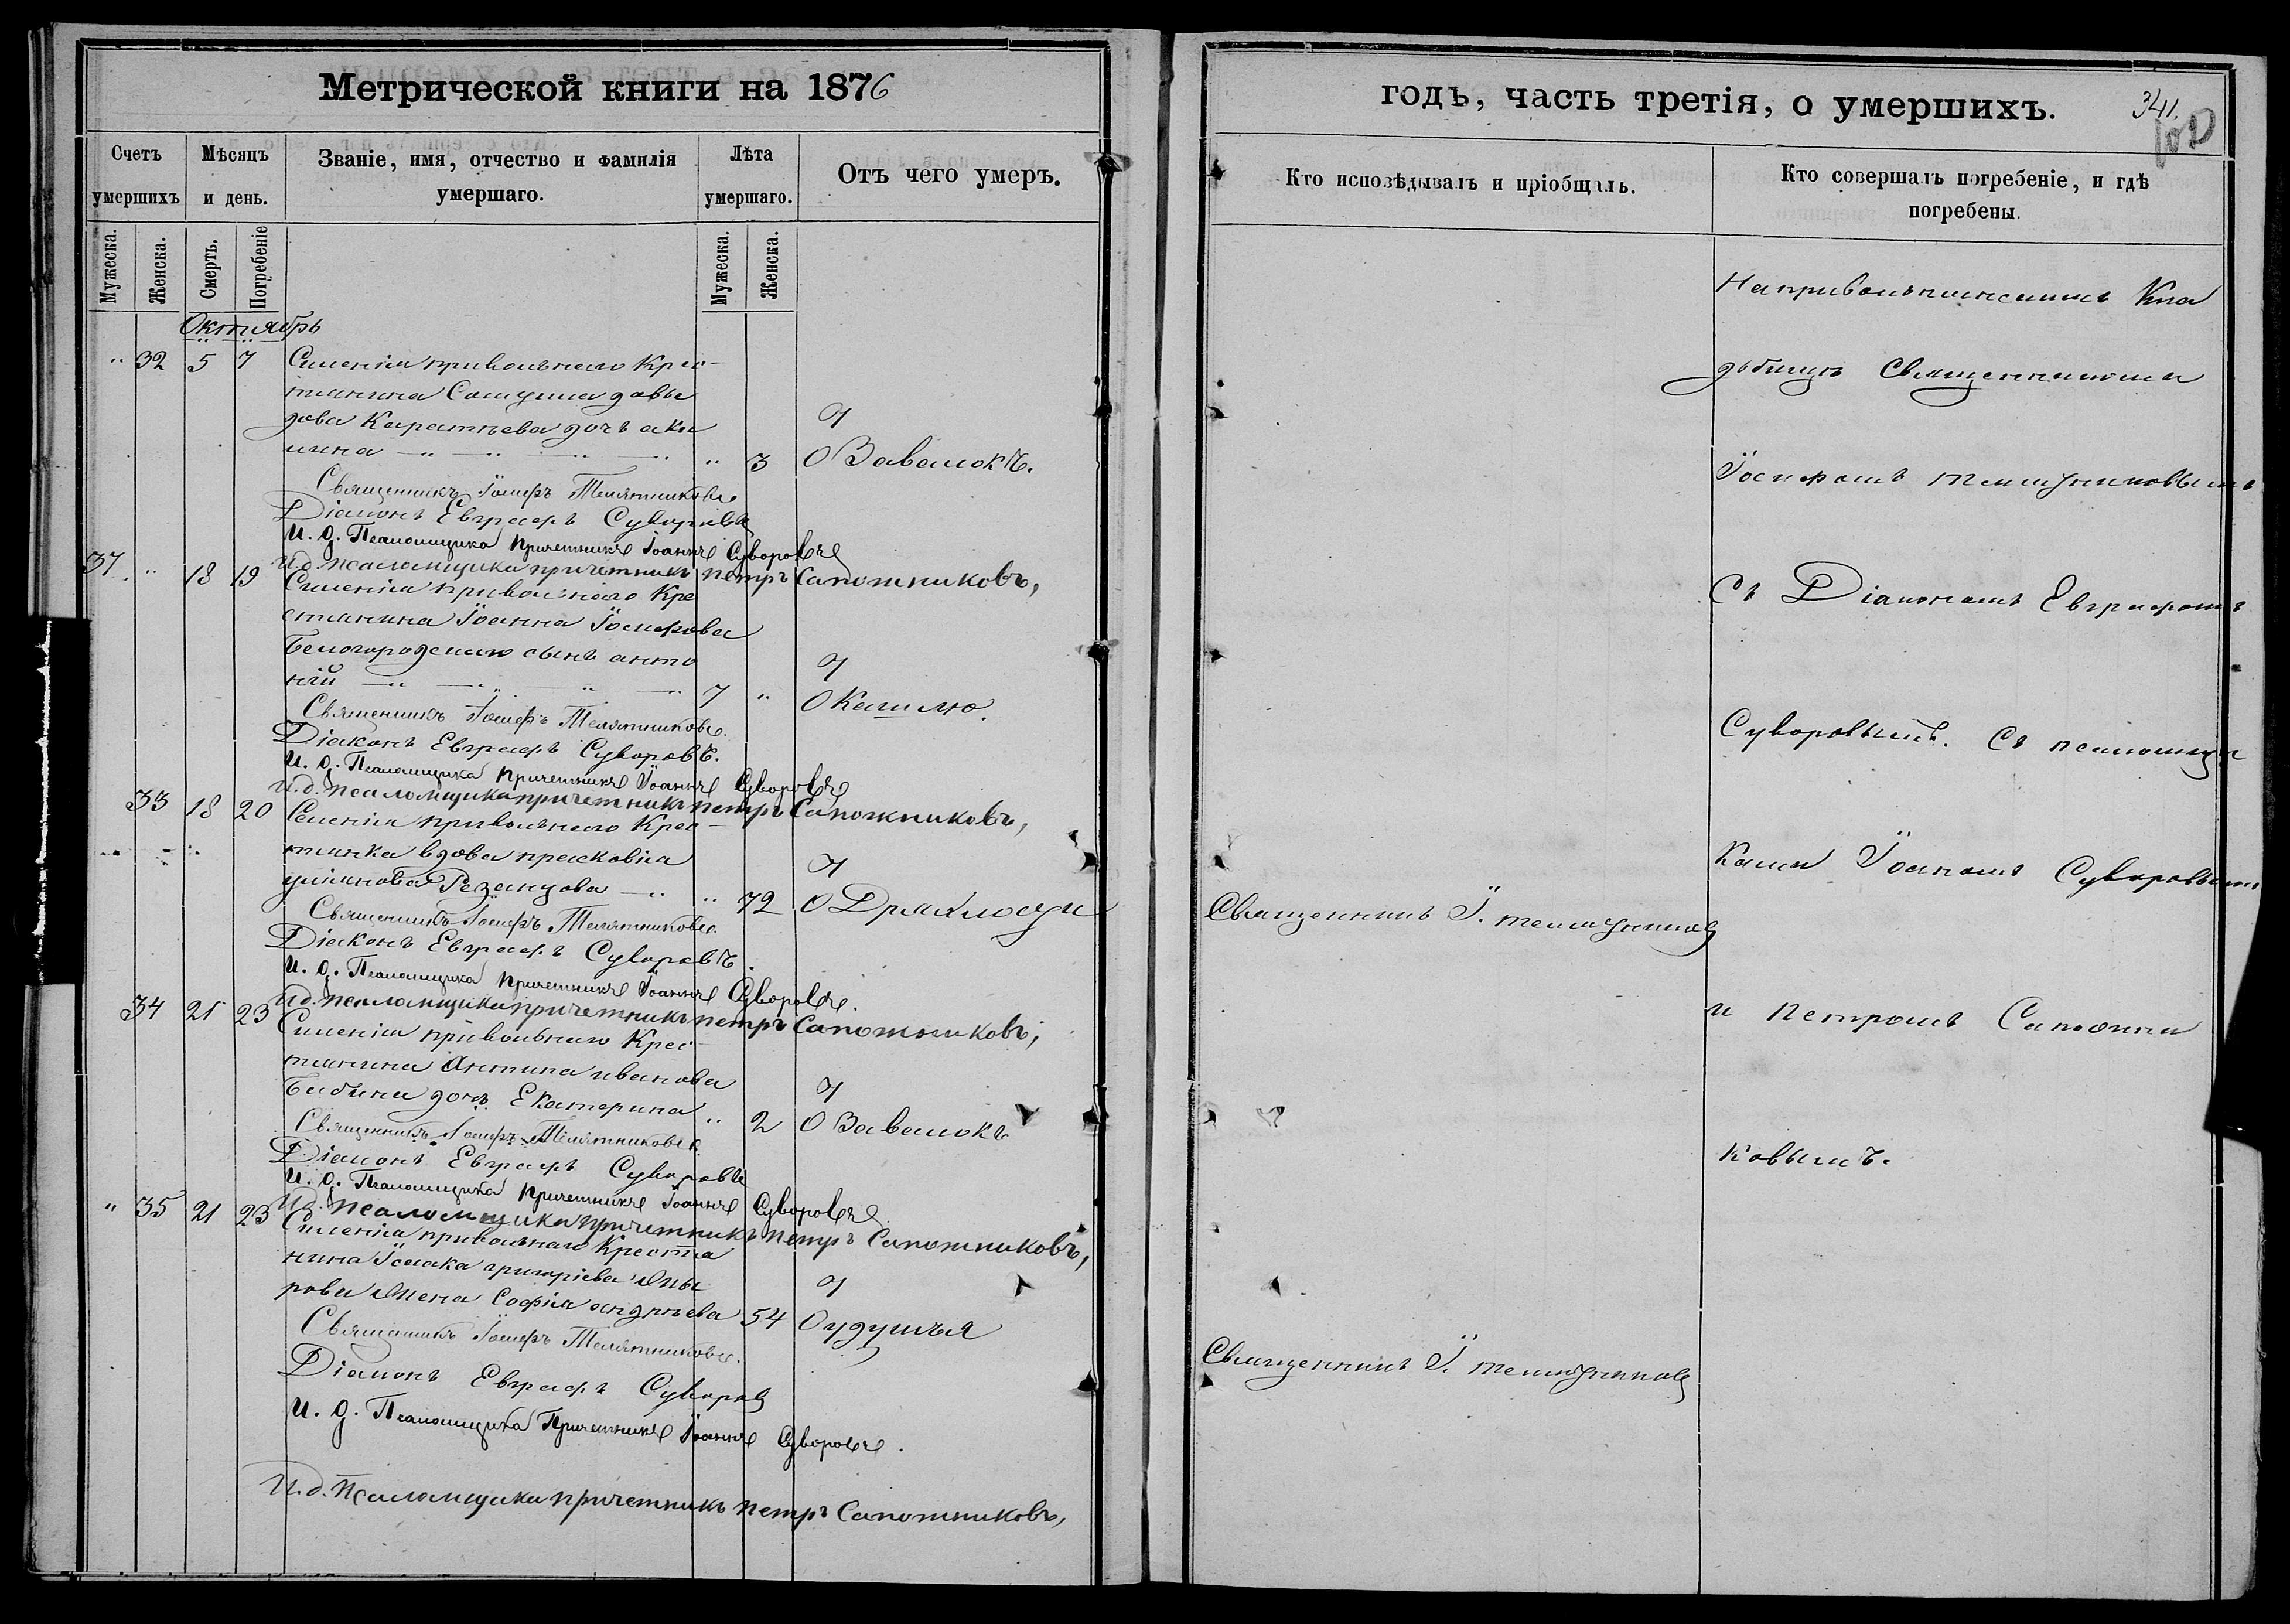 Метрической книги на 1876
годъ, часть третія, о умершихъ.
341.
Счетъ умершихъ
Мѣсяцъ и день.
Званіе, имя, отчество и фамилія умершаго.
Лѣта умершаго.
Отъ чего умеръ.
Кто исповѣдывалъ и пріобщалъ.
Кто совершалъ погребеніе, и гдѣ погребены.
Мужеска.
Женска.
Смерть.
Погребеніе
Мужеска.
Женска.
Октябрь
" 32 5 7 Селенія привольнаго Крес-
тянина Самуила давы
дова дочь аку
лина " 3 О Завалокъ.
Священникъ Іосифъ Телятниковъ.
Діаконъ Евграфъ Суворовъ
И. д. Псаломщика Причетникъ Іоаннъ Суворовъ
И.д. псаломщика причетникъ петръ Сапожниковъ,
37 " 18 19 Селенія привольнаго Кре
стянина Іоанна Іосифова
сынъ анто
ній 7 " О Кашлю.
Священникъ Іосифъ Телятниковъ.
Діаконъ Евграфъ Суворовъ.
И. д. Псаломщика Причетникъ Іоаннъ Суворовъ
И.д. псаломщика причетникъ петръ Сапожниковъ,
33 18 20 Селенія привольнаго Крес-
тянка вдова прасковіа
Резанцова " 72 О Дряхлости
Священникъ Іосифъ Телятниковъ.
Діаконъ Евграфъ Суворовъ.
И. д. Псаломщика Причетникъ Іоаннъ Суворовъ.
И.д. псаломщика причетникъ петръ Сапожниковъ,
34 21 23 Селенія привольнаго Крес-
тянина Антипа иванова
Бабина дочь Екатерина " 2 О Завалокъ
Священникъ Іосифъ Телятниковъ
Діаконъ Евграфъ Суворовъ
И. д. Псаломщика Причетникъ Іоаннъ Суворовъ
И.д. псаломщика причетникъ петръ Сапожниковъ,
" 35 21 23 Селенія привольнаго Крестя
нина Ісаака григоріева
рова жена Софія андреева 54 О удушья
Священникъ Іосифъ Телятниковъ.
Діаконъ Евграфъ Суворовъ
И. д. Псаломщика Причетникъ Іоаннъ Суворовъ.
И.д. Псаломщика причетникъ петръ Сапожниковъ,
Священникъ І. телятниковъ
Священникъ І. телятниковъ
На привольнинскимъ Кла
дбищѣ Священникомъ
Іосифомъ телятниковымъ
Съ Діакономъ Евграфомъ
Суворовымъ. Съ псаломщи
ками Іоаномъ Суворовымъ
и петромъ Сапожни
ковымъ.